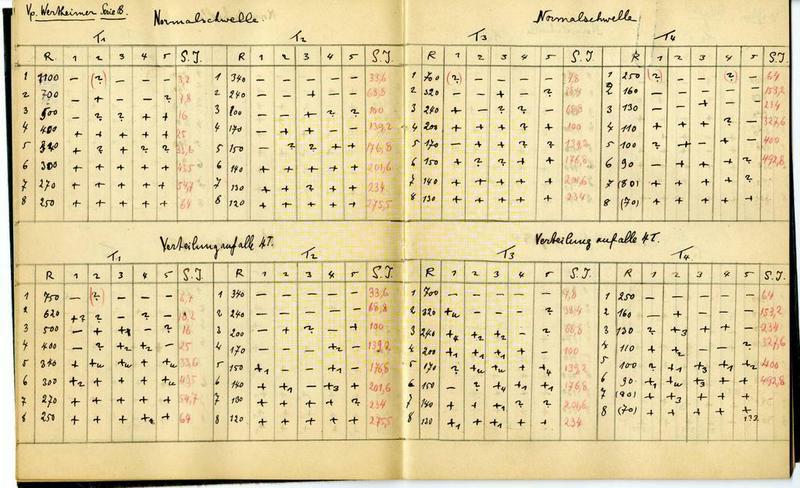 Vp. Wertheimer Serie B.
Normalschwelle
T1 T2
R. 1 2 3 4 5 S.J. R 1 2 3 4 5 S.J.
1 1100 – (?) – – – 3,2 1 340 – – – – – 33,6
2 700 – + – – ? 7,8 2 240 – – + – – 68,8
3 500 – ? ? + + 16 3 200 – – + ? ? 100
4 400 + + + + + 25 4 170 – + + – – 139,2
5 340 + ? + ? ? 33,6 5 150 – ? ? + + 176,8
6 300 + + + + + 43,5 6 140 + + + + + 201,6
7 270 + + + + + 54,7 7 130 + + ? + + 234
8 250 + + + + + 64 8 120 + + + + + 275,5
Verteilung auf alle 4 T.
T1 T2
R 1 2 3 4 5 S.J. R 1 2 3 4 5 S.J.
1 750 – (?) – – – 6,7 1 340 – – – – – 33,6
2 620 +2 ? – ? – 10,2 2 240 – – – – – 68,8
3 500 – + +4 – ? 16 3 200 – + ? – + 100
4 400 – ? +2 +2 – 25 4 170 – – – +2 – 139,2
5 340 + +4 + + +4 33,6 5 150 +1 – – – +1 176,8
6 300 +2 + + + +4 43,5 6 140 + +1 – +3 + 201,6
7 270 + + + + + 54,7 7 130 + + + + ? 234
8 250 + + + +2 + 64 8 120 + + + + + 275,5
Normalschwelle
T3 T4
R 1 2 3 4 5 S.J. R 1 2 3 4 5 S.J.
1 700 (?) – – – – 7,8 1 250 (?) – – (?) – 64
2 320 – – + – ? 38,4 2 160 – – – – – 153,2
3 240 + – ? ? – 68,8 3 130 – – + – – 234
4 200 + + + ? + 100 4 110 + + + ? – 327,6
5 170 – + + ? + 139,2 5 100 ? – + – + 400
6 150 + ? ? + + 176,8 6 90 – + + + ? 492,8
7 140 + + + + + 201,6 7 (80) + + + + ?
8 130 + + + + + 234 8 (70) + + + + +
Verteilung auf alle 4 T.
T3 T4
R 1 2 3 4 5 S.J. R 1 2 3 4 5 S.J.
1 700 – – – – – 7,8 1 250 – – – – – 64
2 320 +4 – – – ? 38,4 2 160 – + – – – 153,2
3 240 + +2 +2 – ? 68,8 3 130 ? +3 + + + 234
4 200 +1 +1 +1 – + 100 4 110 + +2 – – ? 327,6
5 170 ? +4 +4 + +4 139,2 5 100 ? +1 +3 +1 +2 400
6 150 – ? +4 +1 +1 176,8 6 90 +1 +1 +3 + + 492,8
7 140 + + +1 ? ? 201,6 7 (80) + +3 + + +
8 130 +1 + +1 + + 234 8 (70) + + + + +
132